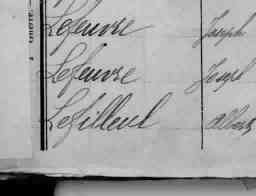 Lefeuvre Joseph
Lefeuvre Joseph
Lefilleul Albert